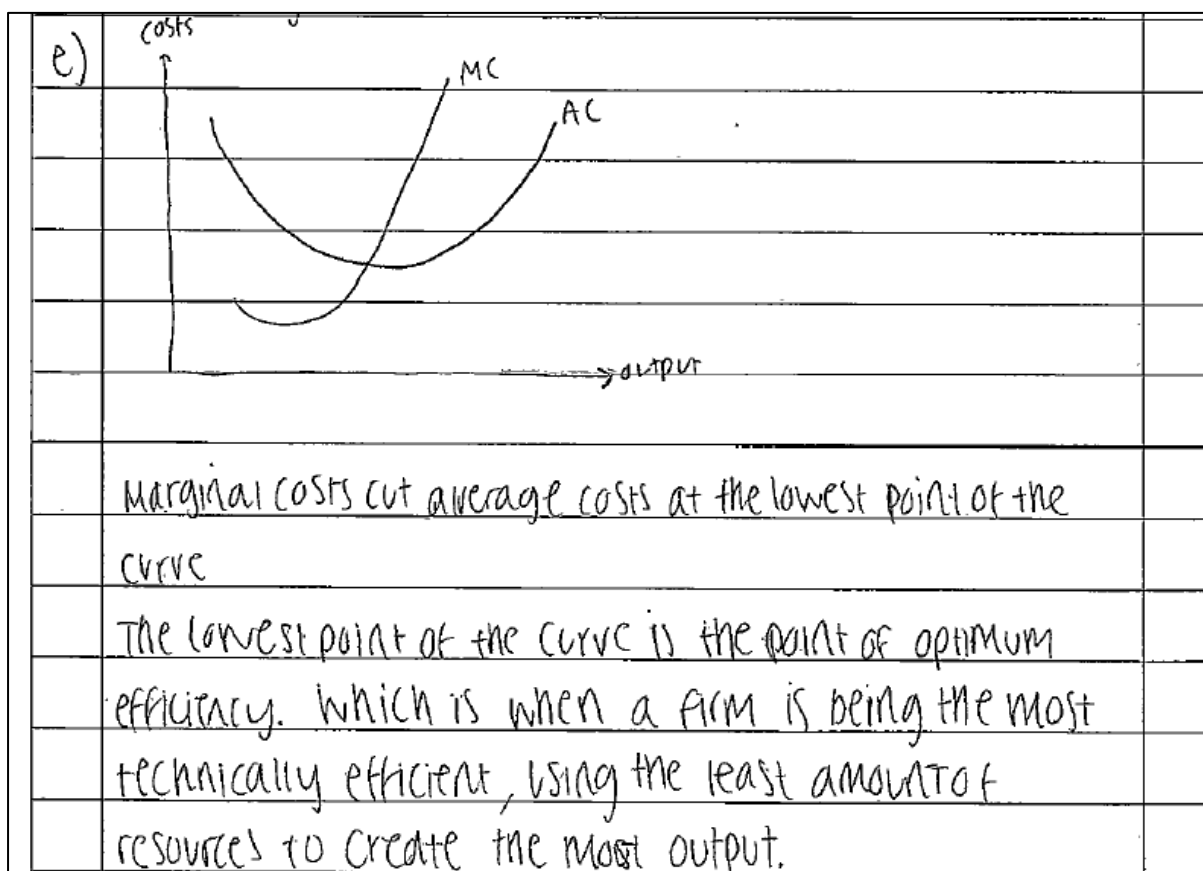 costs
e)
MC
AC
output
Marginal costs cut average costs at the lowest point of the
curve
The lowest point of the curve is the point of optimum
efficiency. Which is when a firm is being the most
technically efficient, using the least amount of
resources to create the most output.